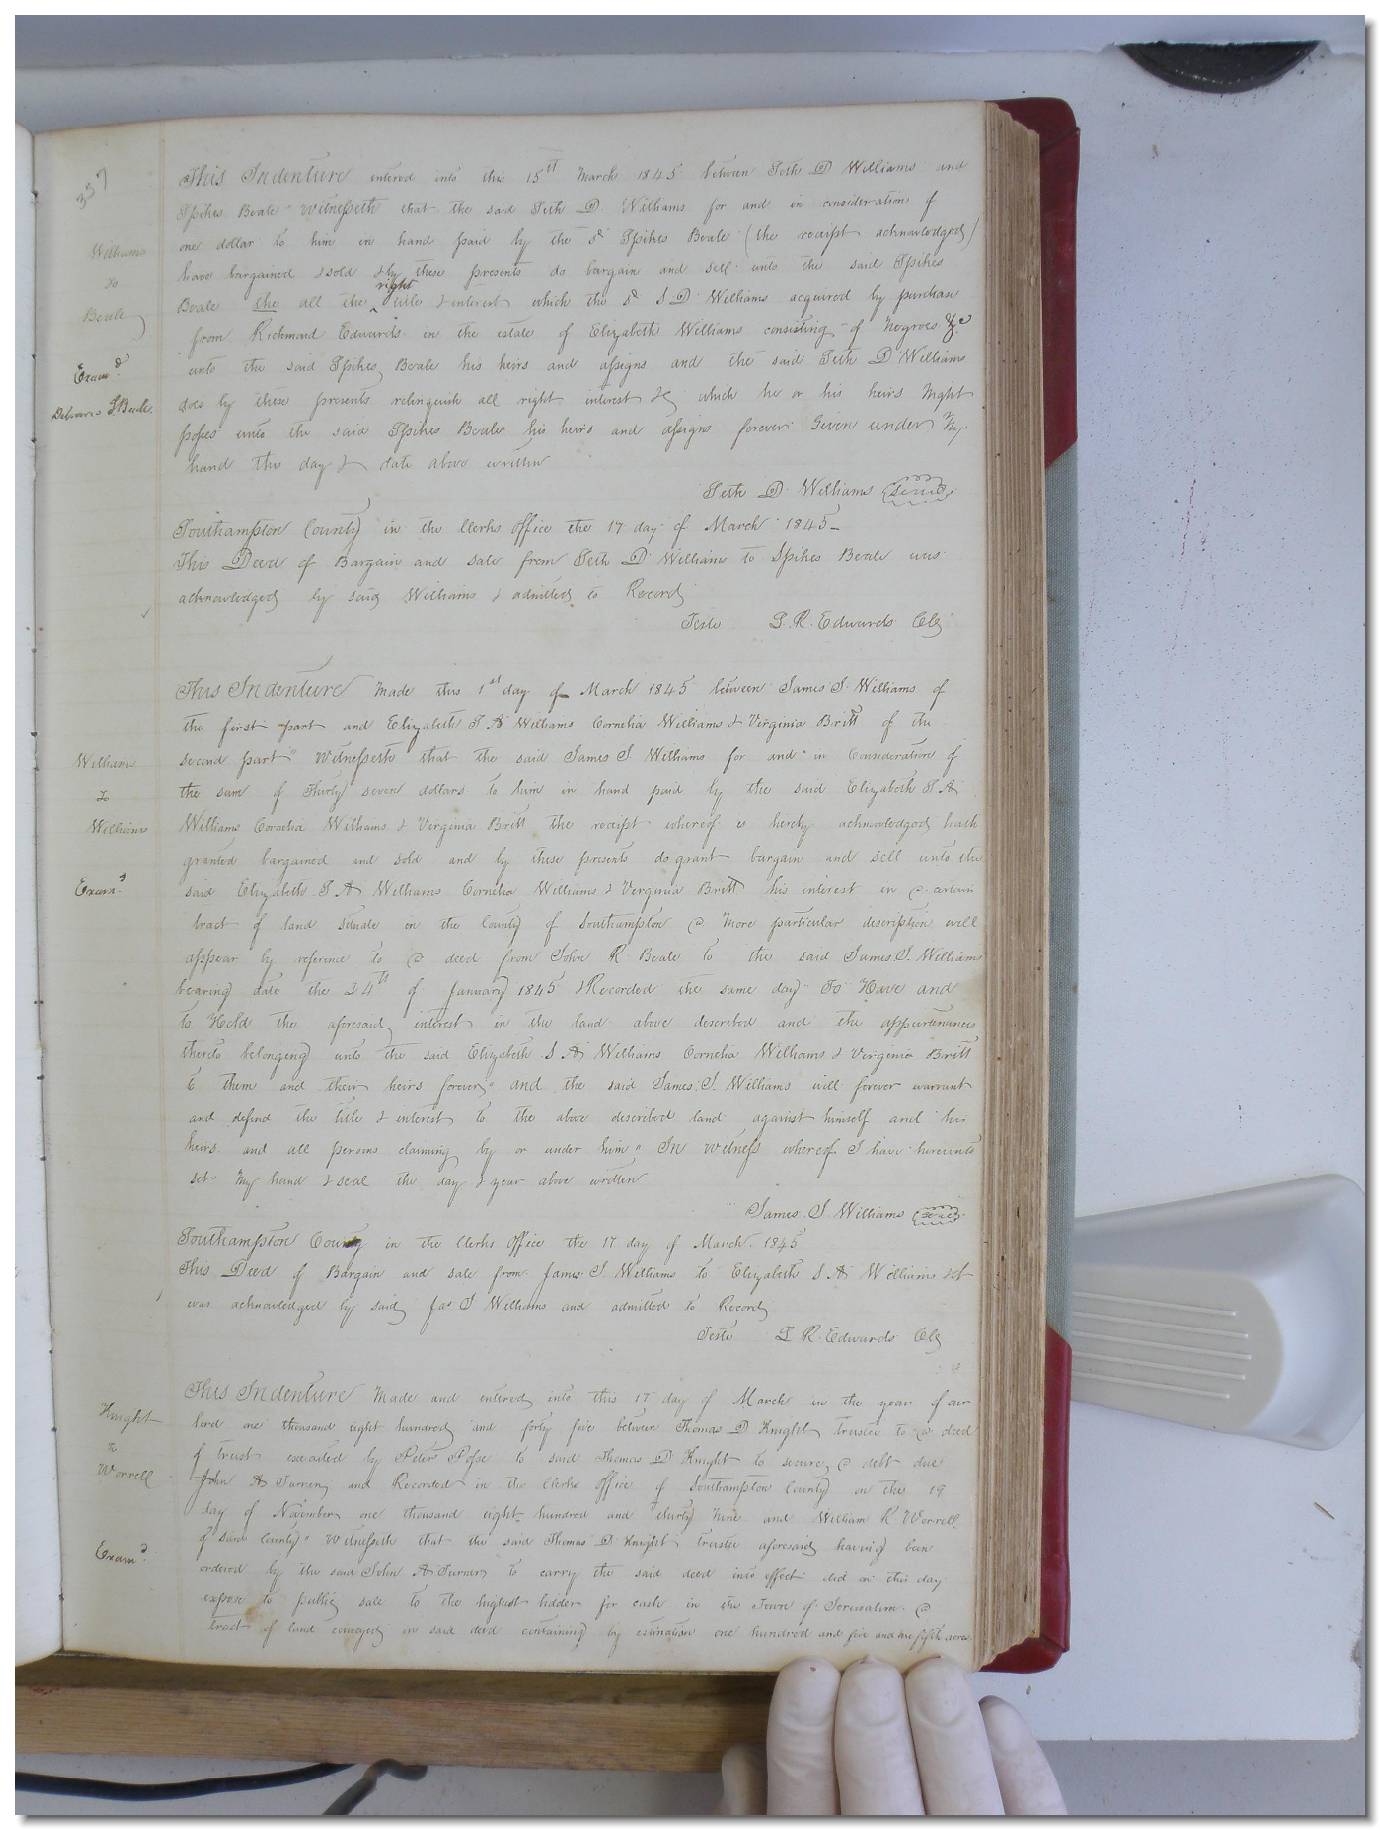 337
This Indenture entered into this 15th March 1845 between Seth D Williams and
Spikes Beale witnesseth that the said Seth D. Williams for and in consideration of
one dollar to him in hand paid by the sd Spikes Beale (the receipt acknowledged)
have bargained & sold & by these presents do bargain and sell unto the said Spikes
Beale the all the right title & interest which the sd S D Williams acquired by purchase
from Richmond Edwards in the estate of Elizabeth Williams consisting of Negroes &c
unto the said Spikes Beale his heirs and assigns and the said Seth D Williams
does by these presents relinquish all right interest &c which he or his heirs Might
posses unto the said Spikes Beale his heirs and assigns forever Given under My
hand the day & date above written
Seth D Williams Seal
Southampton County in the Clerks office the 17 day of March 1845
This Deed of Bargain and sale from Seth D Williams to Spikes Beale was
acknowledged by said Williams & admitted to Record
Teste L. R. Edwards Clk
Williams
To
Beale
Examd
Delivered S Beale
This Indenture Made this 1st day of March 1845 between James S. Williams of
the first part and Elizabeth S A Williams Cornelia Williams & Virginia Britt of the
second part witnesseth that the said James S. Williams for and in Consideration of
the sum of Thirty seven dollars to him in hand paid by the said Elizabeth S A
Williams Cornelia Williams & Virginia Britt the receipt whereof is hereby acknowledged hath
granted bargained and sold and by these presents do grant bargain and sell unto the
said Elizabeth S A Williams Cornelia Williams & Virginia Britt his interest in a certain
tract of land Situate in the County of Southampton a More particular description will
appear by reference to a deed from John R Beale to the said James S. Williams
bearing date the 24th of January 1845 & Recorded the same day To Have and
to Hold the aforesaid interest in the land above described and the appurtenances
thereto belonging unto the said Elizabeth S A Williams Cornelia Williams & Virginia Britt
to them and their heirs forever and the said James S. Williams will forever warrant
and defend the title & interest to the above described land against himself and his
heirs and all persons claiming by or under him In witness whereof I have hereunto
set My hand & seal the day & year above written
James. S. Williams Seal
Southampton County in the Clerks Office the 17 day of March 1845
This Deed of Bargain and sale from James S. Williams to Elizabeth S A Williams &c
was acknowledged by said Jas S Williams and admitted to Record
Teste L R. Edwards Clk
Williams
To
Williams
Examd
This Indenture Made and entered into this 17 day of March in the year of our
lord one thousand eight hundred and forty five between Thomas D Knight trustee to a deed
of trust executed by Peter Pope to said Thomas D Knight to secure a debt due
John A Turner and Recorded in the Clerks Office of Southampton County on the 19
day of November one thousand eight hundred and thirty Nine and William R Worrell
of said County Witnesseth that the said Thomas D Knight trustee aforesaid having been
ordered by the said John A Turner to carry the said deed into effect did on this day
expose to public sale to the highest bidder for cash in the Town of Jerusalem a
tract of land conveyed in said deed containing by estimation one hundred and five and one fifth acres
Knight
To
Worrell
Examd